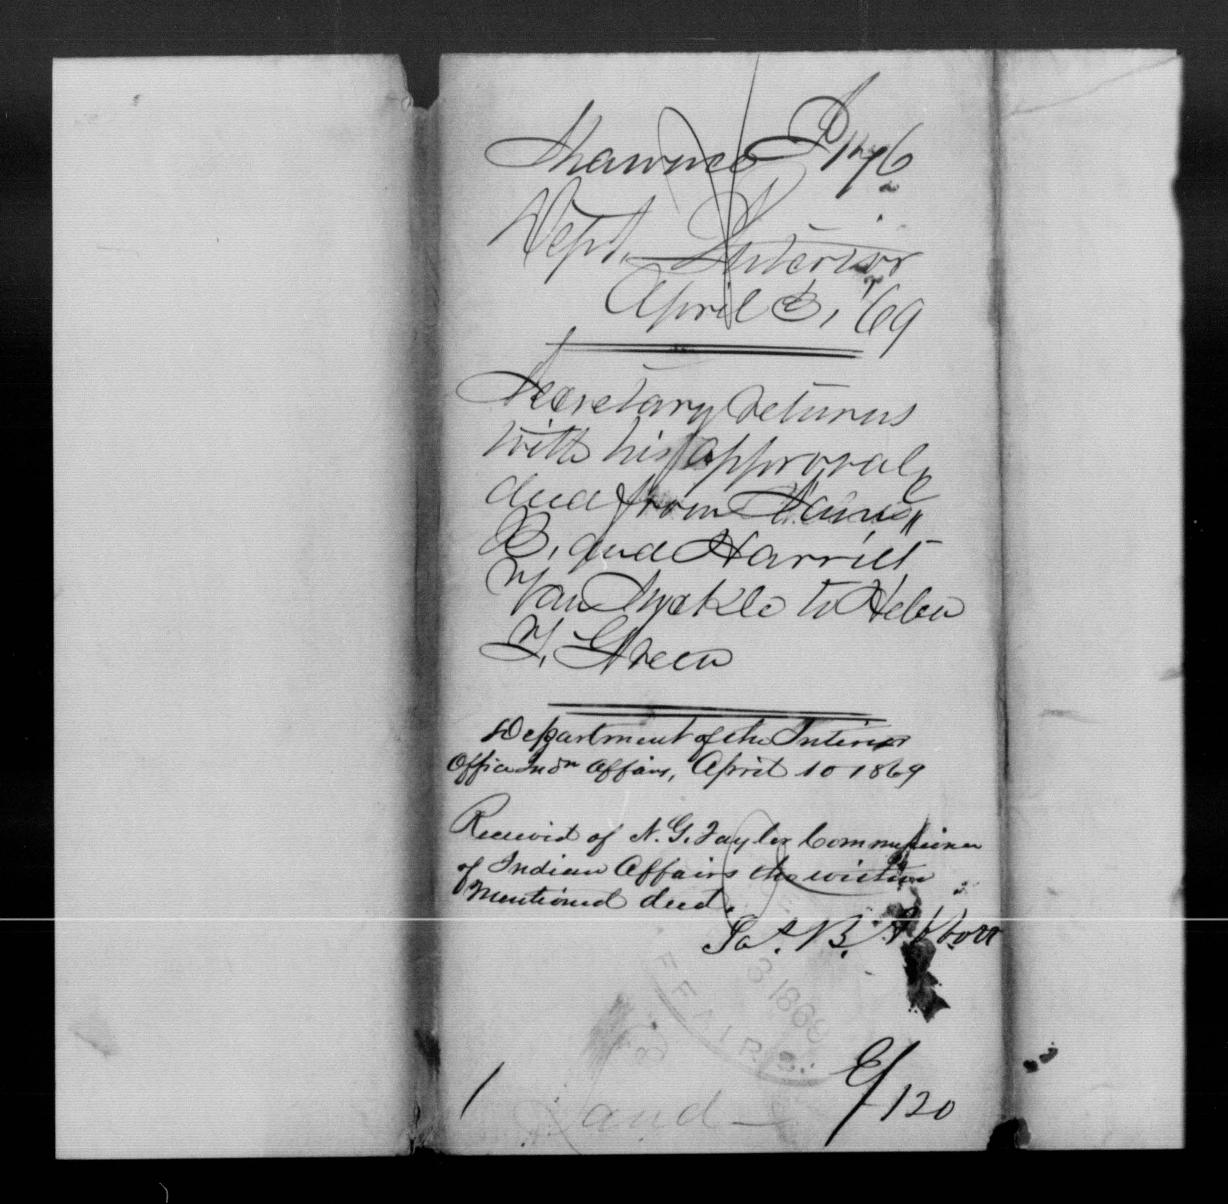 Shawnee I 1176
Dept. Interior
April 3, '69
Secretary returns
with his approval,
deed from James
B. and Harriet
Van Syckle to Helen
T. Green
Department of the Interior
Office Indn Affairs, April 10 1869
Received of N. G. Taylor Commissioner
of Indian Affairs the within
mentioned deed.
Jas. B. Abbott
3 1869
FFAIRS.
1
E/120
Land